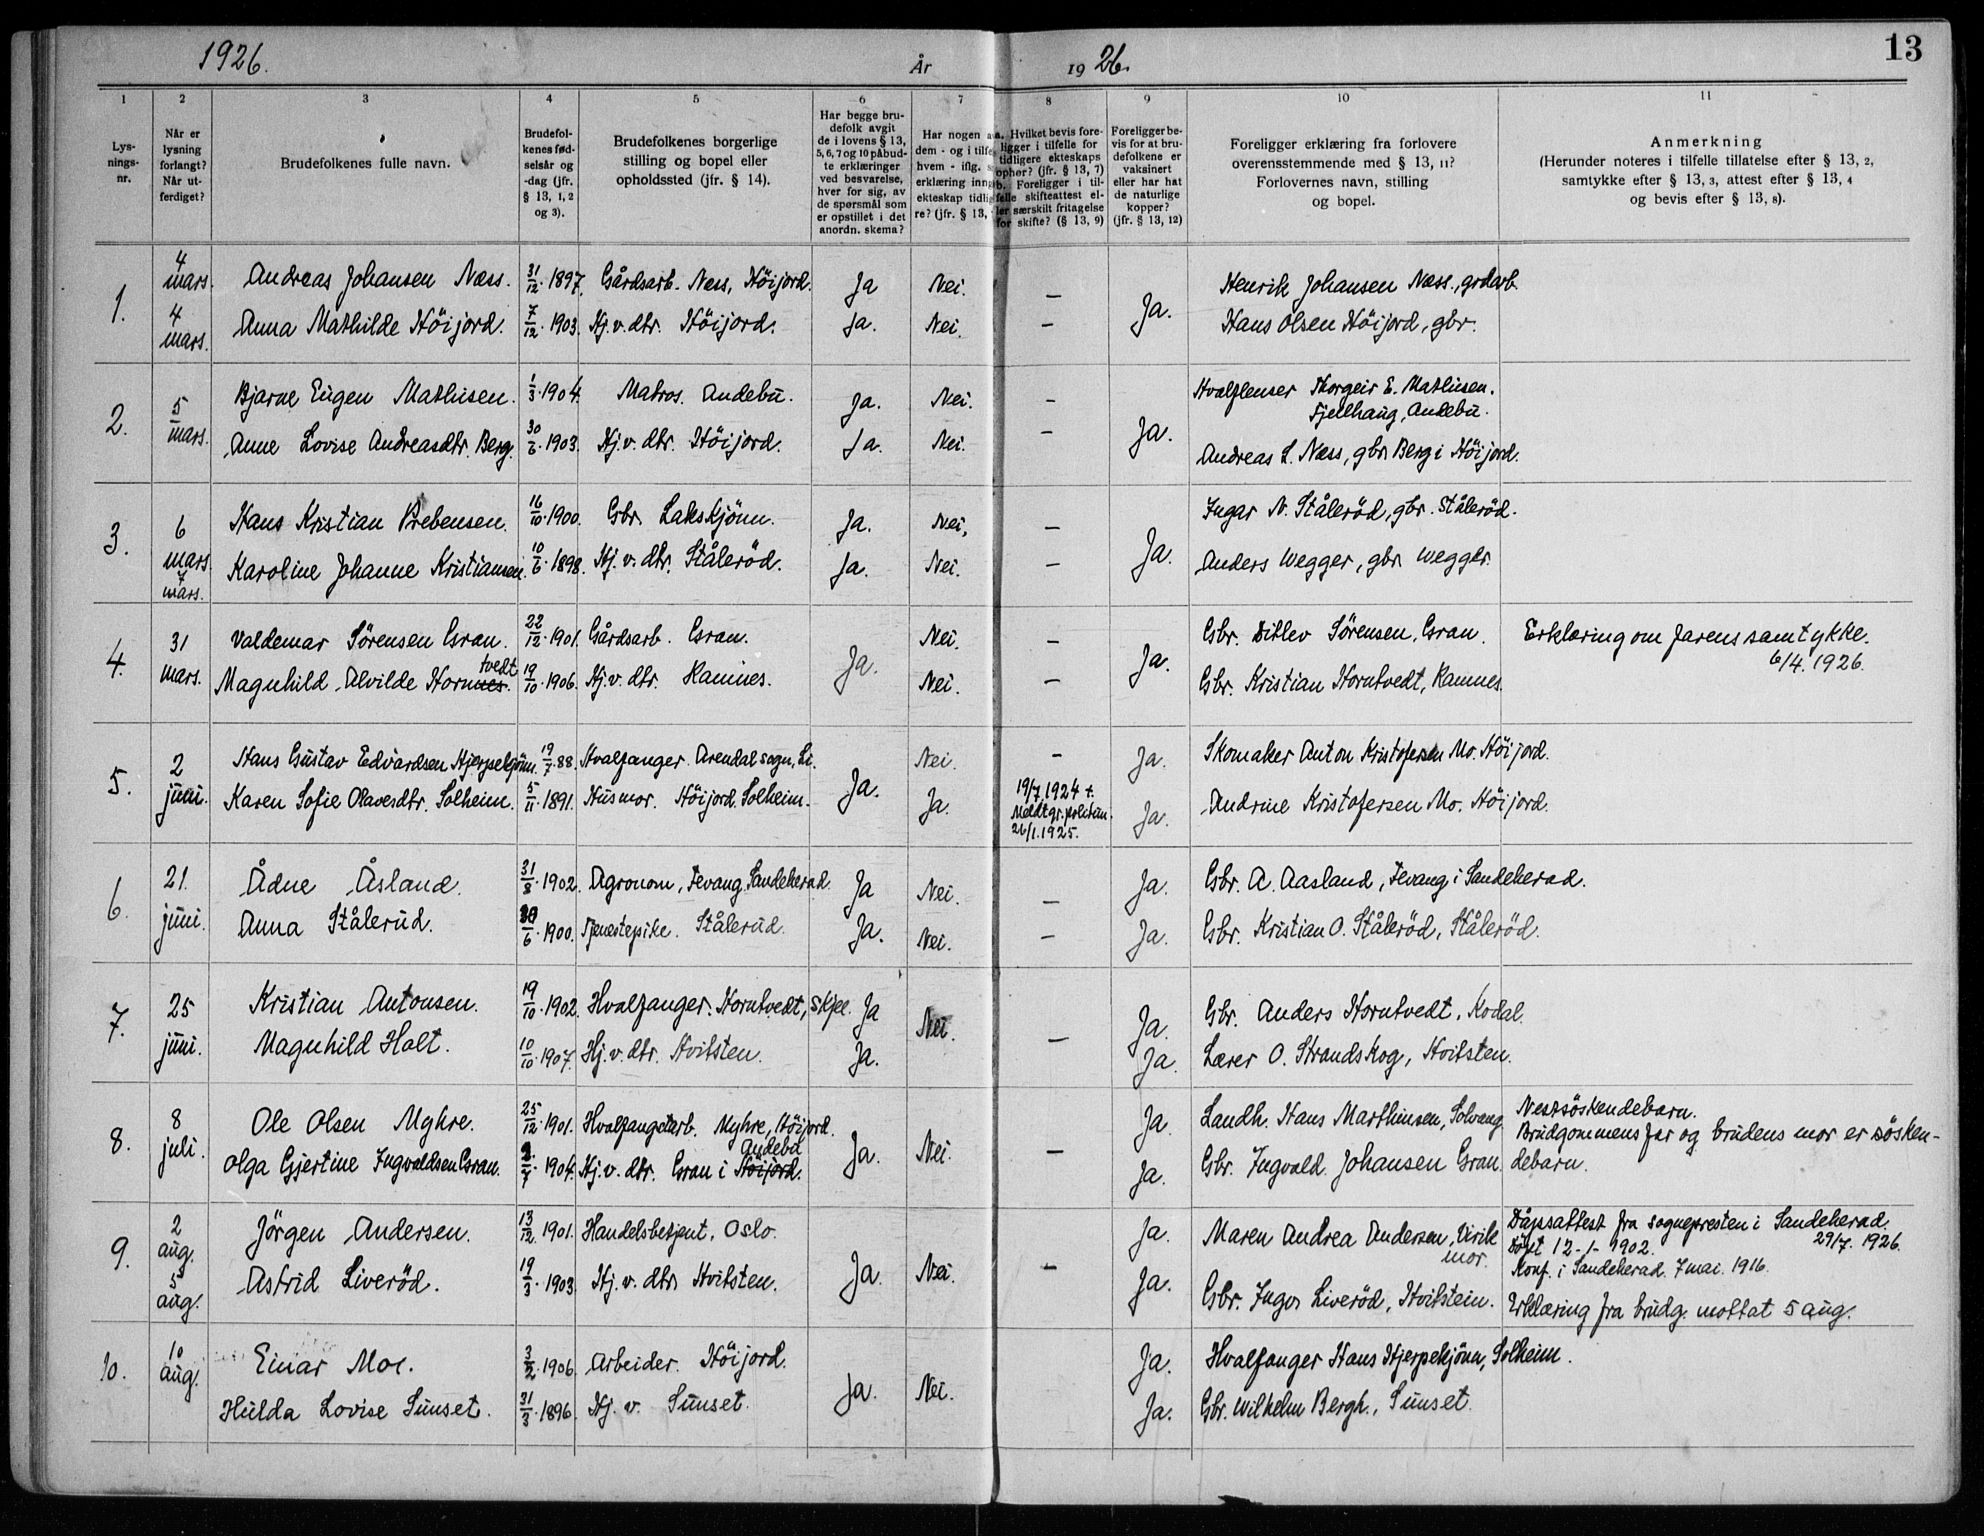 1926.
År
19 26.
13
1
2
3
4
5
6
7
8
9
10
11
Lysningsnr.
Når er lysning forlangt? Når utferdiget?
Brudefolkenes fulle navn.
Brudefolkenes fødselsår og -dag (jfr. § 13, 1, 2 og 3).
Brudefolkenes borgerlige stilling og bopel eller opholdssted (jfr. § 14).
Har begge brudefolk avgit de i lovens § 13, 5, 6, 7 og 10 påbudte erklæringer ved besvarelse, hver for sig, av de spørsmål som er opstillet i det anordn. skema?
Har nogen a
dem - og i tilfe
hvem - iflg. s
erklæring inng
ekteskap tidlig
re? (jfr. § 13,
a. Hvilket bevis foreligger i tilfelle for tidligere ekteskaps ophør? (jfr. § 13, 7)
b. Foreligger i tilfelle skifteattest eller særskilt fritagelse for skifte? (§ 13, 9)
Foreligger bevis for at brudefolkene er vaksinert eller har hat de naturlige kopper? (jfr. § 13, 12)
Foreligger erklæring fra forlovere overensstemmende med § 13, 11? Forlovernes navn, stilling og bopel.
Anmerkning
(Herunder noteres i tilfelle tillatelse efter § 13, 2, samtykke efter § 13, 3, attest efter § 13, 4 og bevis efter § 13, 8).
1. 4 mars. Andreas Johansen Næss. 31/12 1897. Gårdsarb. Næss, Höijord. Ja Nei. — Ja. Henrik Johansen Næss., grdarb.
4 mars. Anna Mathilde Höijord. 7/12 1903. Hj.v.dtr. Höijord. Ja. Nei. — Hans Olsen Höijord, gbr.
2. 5 mars. Bjarne Eugen Mathisen. 1/3 1904. Matros. Andebu. Ja. Nei. — Ja. Hvalflenser Thorgeir E. Mathisen.
Fjellhaug, Andebu.
Anne Lovise Andreasdtr. Berg. 30/6 1903. Hj.v.dtr. Höijord. Ja. Nei. — Andreas L. Næss, gbr. Berg i Höijord.
3. 6 mars. Hans Kristian Prebensen. 16/10 1900. Gbr. Lakskjönn. Ja. Nei. — Ja. Ingar N. Ståleröd, gbr. Ståleröd.
7 mars. Karoline Johanne Kristiansen. 10/6 1898. Hj.v.dtr. Ståleröd. Ja. Nei. — Anders Wegger, gbr. Wegger.
4. 31 mars. Valdemar Sörensen Gran. 22/12 1901. Gårdsarb. Gran. Ja. Nei. — Ja. Gbr. Ditlev Sörensen, Gran. Erklæring om farens samtykke.
6/4. 1926.
tvedt
Magnhild Alvilde Hornnes. 19/10 1906. Hj.v.dtr. Ramnes. Nei. — Gbr. Kristian Horntvedt, Ramnes.
5. 2 juni. Hans Gustav Edvardsen Hjerpekjönn. 19/7 88. Hvalfanger. Arendal sogn, Li. Ja. Nei. — Ja. Skomaker Anton Kristofersen Mo. Höijord.
Karen Sofie Olavesdtr. Solheim. 5/11 1891. Husmor. Höijord. Solheim. Ja. 19/7 1924 †.
Meldt gr. politum.
26/1. 1925.
Ja. Andrine Kristofersen Mo. Höijord.
6. 21. juni. Ådne Åsland. 31/8 1902. Agronom, Fevang, Sandeherad Ja Nei. — Ja. Gbr. A. Aasland, Fevang i Sandeherad.
Anna Stålerud. /6 1900. Tjenestepike. Stålerud. Ja. Nei. — Ja. Gbr. Kristian O. Ståleröd, Ståleröd.
7. 25 juni. Kristian Antonsen. 19/10 1902. Hvalfanger. Horntvedt, Skjee. Ja Nei. — Ja. Gbr. Anders Horntvedt. Kodal.
Magnhild Holt. 10/10 1907. Hj.v.dtr. Hvitsten. Ja. Ja. Lærer O. Strandskog, Hvitsten.
8. 8 juli. Ole Olsen Myhre. 25/12 1901. Hvalfangstarb. Myhre, Höijord. Ja. Nei. — Ja. Landh. Hans Marthinsen, Solvang. Nestsöskendebarn.
Brudgommens far og brudens mor er söskendebarn.
Andebu
Olga Gjertine Ingvaldsen Gran. /7 1904. Hj.v.dtr. Gran i Höijord. Ja. Gbr. Ingvald Johansen Gran.
9. 2 aug. Jörgen Andersen. 13/12 1901. Handelsbetjent. Oslo. Ja. Nei. — Ja. Maren Andrea Andersen, Virik
mor.
Dåpsattest fra sognepresten i Sandeherad.
29/7. 1926.
Döpt 12-1-1902.
Konf. i Sandeherad. 7 mai. 1916.
5 aug. Astrid Liveröd. 19/3 1903. Hj.v.dtr. Hvitsten. Ja. Gbr. Ingvr Liveröd, Hvitstein. Erklæring fra brudg. mottat 5 aug.
10. 10 aug. Einar Moe. 3/2 1906. Arbeider. Höijord. Ja. Nei. Ja. Hvalfanger Hans Hjerpekjönn, Solheim.
Hulda Lovise Sunset. 31/3 1896. Hj.v. Sunset. Ja. Gbr. Wilhelm Bergh., Sunset.